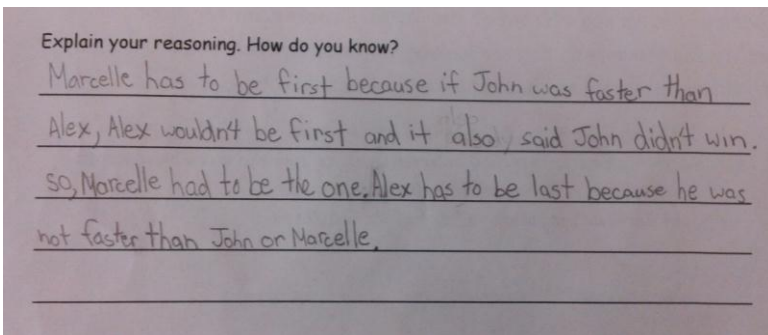 Explain your reasoning. How do you know?
Marcelle has to be first because if John was faster than
Alex, Alex wouldn't be first and it also said John didn't win.
so, Marcelle had to be the one. Alex has to be last because he was
not faster than John or Marcelle.